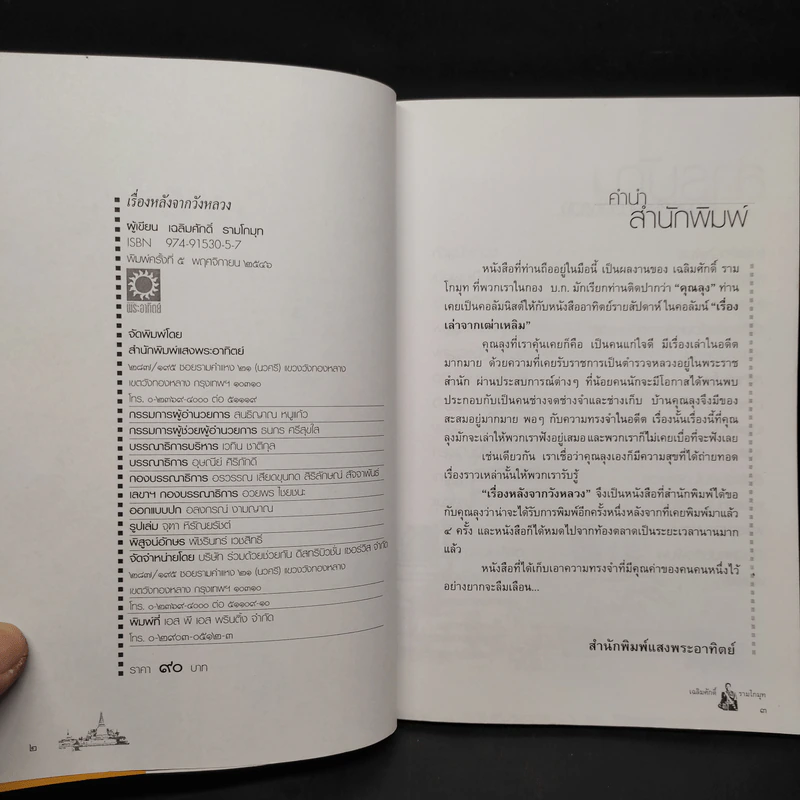 เรื่องหลังจากวังหลวง
ผู้เขียน เฉลิมศักดิ์ รามโกมุท
ISBN 974-91530-5-7
พิมพ์ครั้งที่ ๕ พฤศจิกายน ๒๕๔๖
พระอาทิตย์
จัดพิมพ์โดย
สำนักพิมพ์แสงพระอาทิตย์
๒๘๗/๑๙๕ ซอยรามคำแหง ๒๑ (นวศรี) แขวงวังทองหลาง
เขตวังทองหลาง กรุงเทพฯ ๑๐๓๑๐
โทร. ๐-๒๗๖๙-๔๐๐๐ ต่อ ๕๑๑๑๙
กรรมการผู้อำนวยการ สนธิญาณ หนูแก้ว
กรรมการผู้ช่วยผู้อำนวยการ ธนกร ศรีสุขใส
บรรณาธิการบริหาร เวทิน ชาติกุล
บรรณาธิการ อุษณีย์ ศิริภักดี
กองบรรณาธิการ อรวรรณ เสียดขุนทด สิริลักษณ์ สัจจาพันธ์
เลขาฯ กองบรรณาธิการ อวยพร ไชยชนะ
ออกแบบปก อลงกรณ์ งามญาณ
รูปเล่ม จุฑา หิรัณยรังต์
พิสูจน์อักษร พัชรินทร์ เวชสิทธิ์
จัดจำหน่ายโดย บริษัท ร่วมด้วยช่วยกัน ดิสทริบิวชั่น เซอร์วิส จำกัด
๒๘๗/๑๙๕ ซอยรามคำแหง ๒๑ (นวศรี) แขวงวังทองหลาง
เขตวังทองหลาง กรุงเทพฯ ๑๐๓๑๐
โทร. ๐-๒๗๖๙-๔๐๐๐ ต่อ ๕๑๑๐๙-๑๐
พิมพ์ที่ เอส พี เอส พรินติ้ง จำกัด
โทร. ๐-๒๙๐๓-๐๕๑๒-๓
ราคา ๙๐ บาท
๒
คำนำ
สำนักพิมพ์
หนังสือที่ท่านถืออยู่ในมือนี้ เป็นผลงานของ เฉลิมศักดิ์ ราม
โกมุท ที่พวกเราในกอง บ.ก. มักเรียกท่านติดปากว่า “คุณลุง” ท่าน
เคยเป็นคอลัมนิสต์ให้กับหนังสืออาทิตย์รายสัปดาห์ ในคอลัมน์ “เรื่อง
เล่าจากเฒ่าเหลิม”
คุณลุงที่เราคุ้นเคยก็คือ เป็นคนแก่ใจดี มีเรื่องเล่าในอดีต
มากมาย ด้วยความที่เคยรับราชการเป็นตำรวจหลวงอยู่ในพระราช
สำนัก ผ่านประสบการณ์ต่างๆ ที่น้อยคนนักจะมีโอกาสได้พานพบ
ประกอบกับเป็นคนช่างจดช่างจำและช่างเก็บ บ้านคุณลุงจึงมีของ
สะสมอยู่มากมาย พอๆ กับความทรงจำในอดีต เรื่องนั้นเรื่องนี้ที่คุณ
ลุงมักจะเล่าให้พวกเราฟังอยู่เสมอ และพวกเราก็ไม่เคยเบื่อที่จะฟังเลย
เช่นเดียวกัน เราเชื่อว่าคุณลุงเองก็มีความสุขที่ได้ถ่ายทอด
เรื่องราวเหล่านั้นให้พวกเรารับรู้
“เรื่องหลังจากวังหลวง” จึงเป็นหนังสือที่สำนักพิมพ์ได้ขอ
กับคุณลุงว่าน่าจะได้รับการพิมพ์อีกครั้งหนึ่งหลังจากที่เคยพิมพ์มาแล้ว
๔ ครั้ง และหนังสือก็ได้หมดไปจากท้องตลาดเป็นระยะเวลานานมาก
แล้ว
หนังสือที่ได้เก็บเอาความทรงจำที่มีคุณค่าของคนคนหนึ่งไว้
อย่างยากจะลืมเลือน...
สำนักพิมพ์แสงพระอาทิตย์
เฉลิมศักดิ์ รามโกมุท
๓